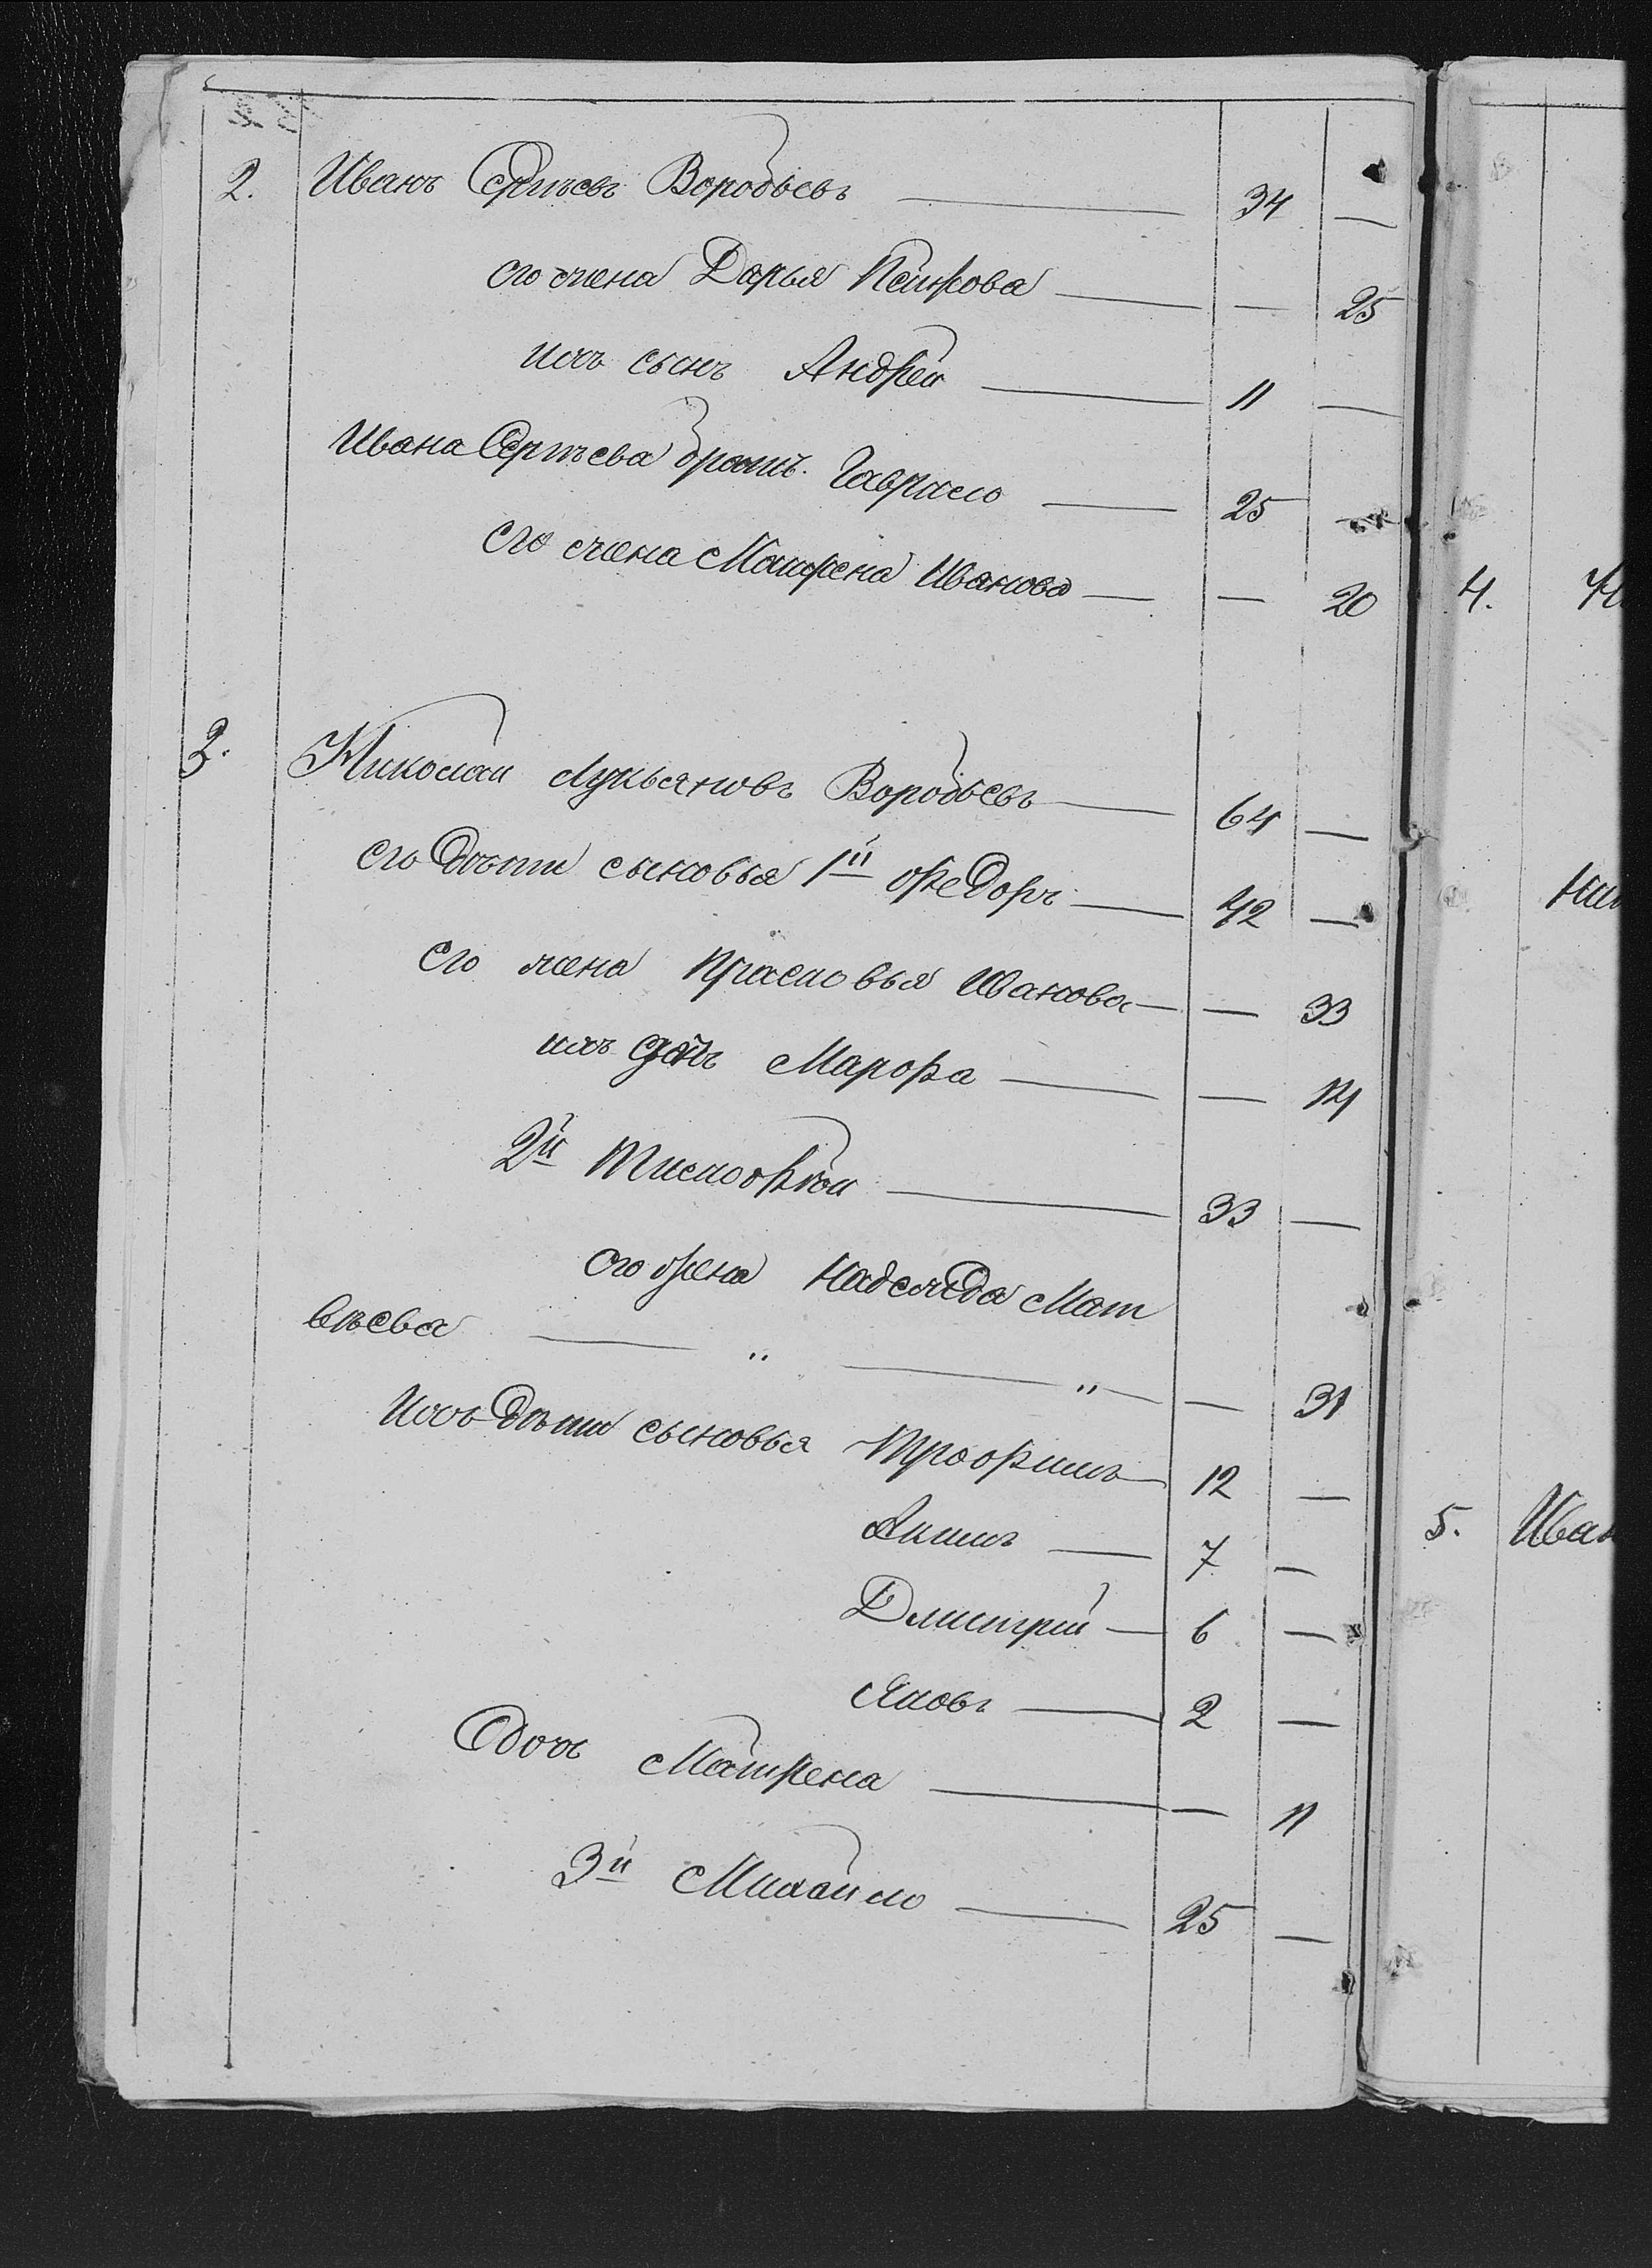 2. Иванъ Сергѣевъ Воробьевъ — 34 —
его жена Дарья Петрова — — 25
ихъ сынъ Андрей — 11 —
Ивана Сергѣева братъ Гаврило — 25 —
его жена Матрена Иванова — — 20
3. Николай Лукьяновъ Воробьевъ — 64 —
его дѣти сыновья 1й Федоръ — 42 —
его жена Прасковья Иванова — — 33
ихъ дочь Марфа — — 14
2й Тимофей — 33 —
его жена Надежда Мат
вѣева — " — " — — 31
Ихъ дѣти сыновья Трофимъ — 12 —
Якимъ — 7 —
Дмитрій — 6 —
Яковъ — 2 —
дочь Матрена — — 11
3й Михайло — 25 —
4.
5. Иван